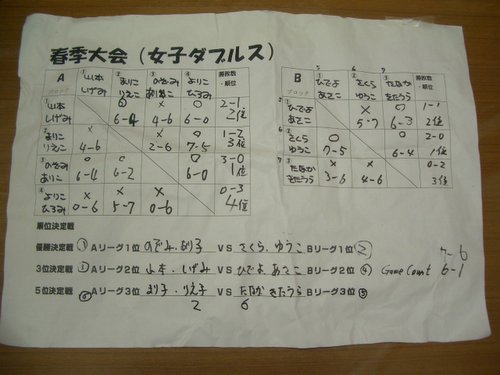 春季大会(女子ダブルス)
A ① ② ③ ④ 勝敗数・順位
ブロック 山本 しげみ まりこ りえこ のぞみ よりこ ひろみ
① 山本 しげみ ○ 6-4 × 4-6 ○ 6-0 2-1 2位
② まりこ りえこ × 4-6 × 2-6 ○ 7-5 1-2 3位
③ のぞみ ○ 6-4 ○ 6-2 ○ 6-0 3-0 1位
④ よりこ ひろみ × 0-6 × 5-7 × 0-6 0-3 4位
5 6 7
B ① ② ③ 勝敗数・順位
ブロック ひでよ あさこ さくら ゆうこ たなか きたうら
5 ① ひでよ あさこ × 5-7 ○ 6-3 1-1 2位
6 ② さくら ゆうこ ○ 7-5 ○ 6-4 2-0 1位
7 ③ たなか きたうら × 3-6 × 4-6 0-2 3位
順位決定戦
優勝決定戦 Aリーグ1位 のぞみ. VS さくら、ゆうこ Bリーグ1位 7-6
3位決定戦 Aリーグ2位 しげみ VS ひでよ あさこ Bリーグ2位 Game Count 6-1
5位決定戦 Aリーグ3位 まり子・りえ子 VS たなか きたうら Bリーグ3位
2 6